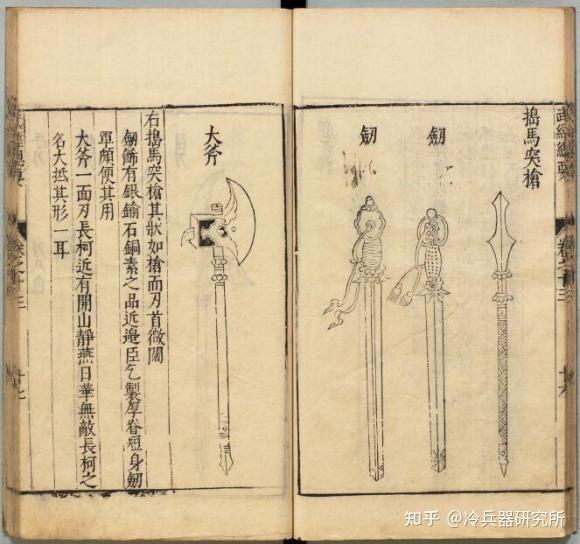 武經總要
搗馬突槍
劒
劒
大斧
右搗馬突槍其狀如槍而刃首微闊
劒飾有銀鍮石銅素之品近邊臣乞製厚脊短身劒
軍頗便其用
大斧一面刃長柯近有開山靜燕日華無敵長柯之
名大抵其形一耳
知乎 @冷兵器研究所